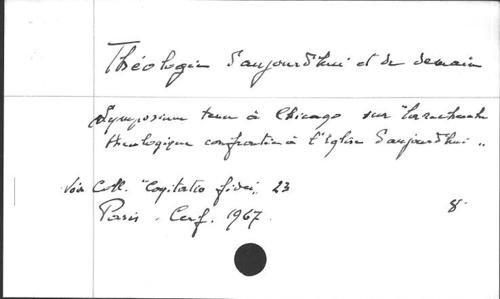 Théologie d'aujourd'hui et de demain
Symposium tenu à Chicago sur "la recherche
théologique confrontée à l'Eglise d'aujourd'hui"
Voir Coll. "Cogitatio fidei" 23
Paris. Cerf. 1967.
8°